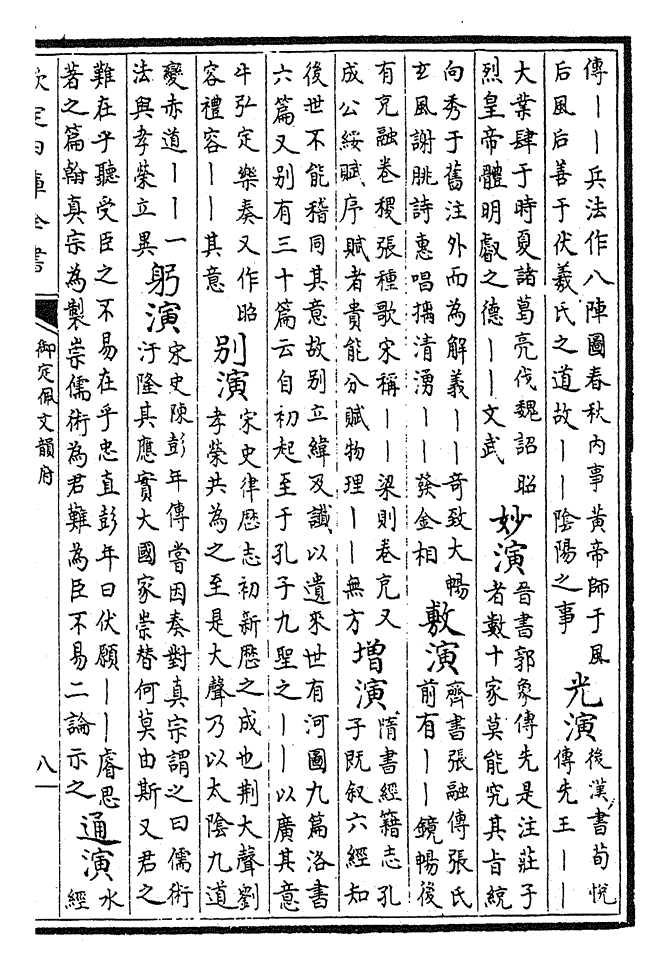 傳——兵法作八陣圖春秋内事黄帝師于風
后風后善于伏羲氏之道故——隂陽之事
光演
後漢書荀恱
傳先王——
大業肆于時夏諸葛亮伐魏詔昭
烈皇帝體明叡之德——文武
妙演
晉書郭象傳先是注莊子
者數十家莫能究其旨統
向秀于舊注外而為解義——竒致大暢
𤣥風謝朓詩惠唱摛清湧——發金相
敷演
齊書張融傳張氏
前有——鏡暢後
有充融卷稷張種歌宋稱——梁則卷充又
成公綏賦序賦者貴能分賦物理——無方
増演
隋書經籍志孔
子既叙六經知
後世不能稽同其意故别立緯及讖以遺來世有河圖九篇洛書
六篇又别有三十篇云自初起至于孔子九聖之——以廣其意
牛弘定樂奏又作昭
容禮容——其意
别演
宋史律厯志初新厯之成也荆大聲劉
孝榮共為之至是大聲乃以太隂九道
變赤道——一
法與孝榮立異
躬演
宋史陳彭年傳嘗因奏對真宗謂之曰儒術
汙隆其應實大國家崇替何莫由斯又君之
難在乎聽受臣之不易在乎忠直彭年曰伏願——睿思
著之篇翰真宗為製崇儒術為君難為臣不易二論示之
通演
水
經
欽定四庫全書
御定佩文韻府
八